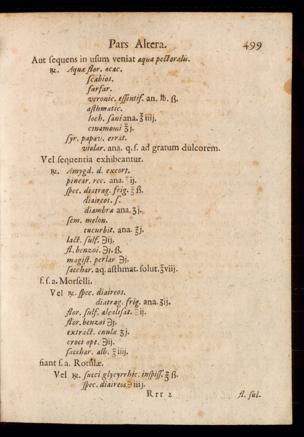 Pars Altera. 499
Aut sequens in usum veniat aqua pectoralis.
℞. Aquæ flor. acac.
scabios.
farfar.
veronic. essentif. an. ℔. ß.
asthmatic.
loch. sani ana. ℥ iiij.
cinamomi ℥j.
syr. papav. errat.
violar. ana. q.s. ad gratum dulcorem.
Vel sequentia exhibeantur.
℞. Amygd. d. excort.
pinear. rec. ana. ℥ij.
spec. diatrag. frig. ℥ ß.
diaireos. s.
diambræ ana. ʒj.
sem. melon.
cucurbit. ana. ʒj.
lact. sulf. ℈ij.
fl. benzoi. ℈j. ß.
magist. perlar ℈j.
sacchar. aq. asthmat. solut. ℥viij.
f. s. a. Morselli.
Vel ℞. spec. diaireos.
diatrag. frig. ana. ʒij.
flor. sulf. aloolisat. ℥ ij.
flor. benzoi ℈j.
extract. enulæ ʒj.
croci opt. ℈ij.
sacchar. alb. ℥ iiij.
fiant s. a. Rotulæ.
Vel ℞. succi glycyrrhic. inspiss. ℥ ß.
spec. diaireos ℈ iiij.
Rrr 2 fl. sul.